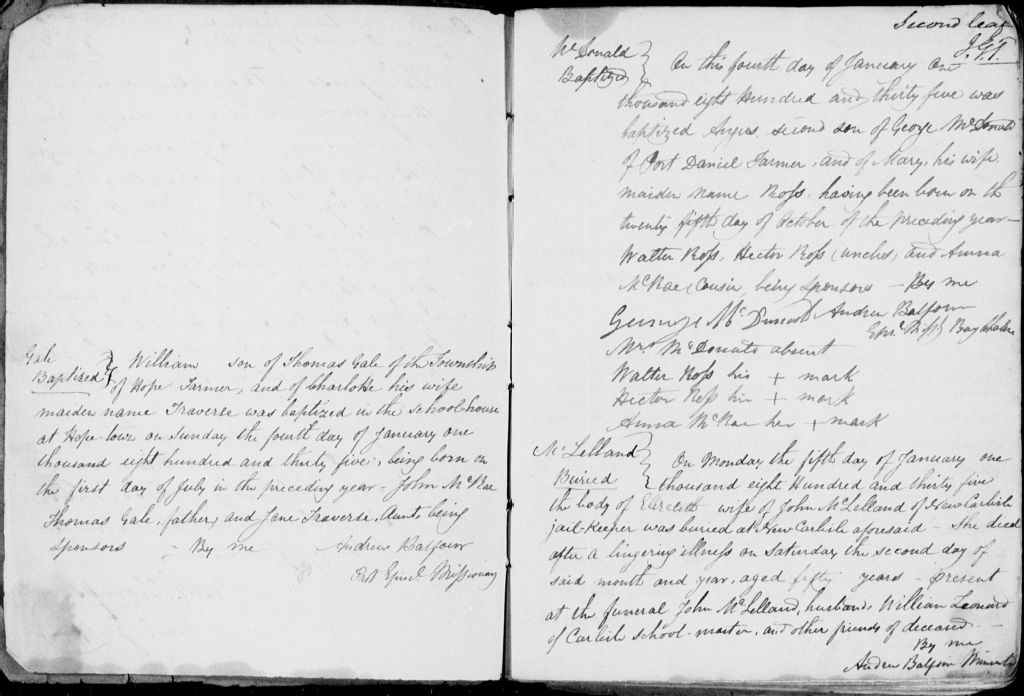 Gale
Baptized } William son of Thomas Gale of the Township
of Hope Farmer, and of Charlotte his wife
maiden name Traverse was baptized in the school house
at Hope-town on Sunday the fourth day of January one
thousand eight hundred and thirty five, being born on
the first day of July in the preceding year - John McRae
Thomas Gale, father, and Jane Traverse, Aunt, being
sponsors - By me Andrew Balfour
Prot Episcl Missionary
Second leaf
J.G.T.
McDonald
Baptized } On this fourth day of January One
thousand eight Hundred and thirty five was
baptized Angus, second son of George McDonald
of Port Daniel Farmer, and of Mary, his wife
maiden name Ross, having been born on the
twenty fifth day of October of the preceding year —
Walter Ross, Hector Ross (uncles) and Anna
McRae, Cousin, being sponsors — By me
George McDonald Andrew Balfour
Episl Missy Bay Chaleur
Mrs McDonald absent
Walter Ross his + mark
Hector Ross his + mark
Anna McRae her + mark
McLelland
Buried } On Monday the fifth day of January one
thousand eight Hundred and thirty five
the body of Elizabeth wife of John McLelland of New Carlisle
jail-keeper was buried at New Carlisle aforesaid - She died
after a lingering illness on Saturday the second day of
said month and year, aged fifty years - present
at the funeral John McLelland, husband, William Leonard
of Carlisle school-master, and other friends of deceased. —
By me
Andrew Balfour Minister